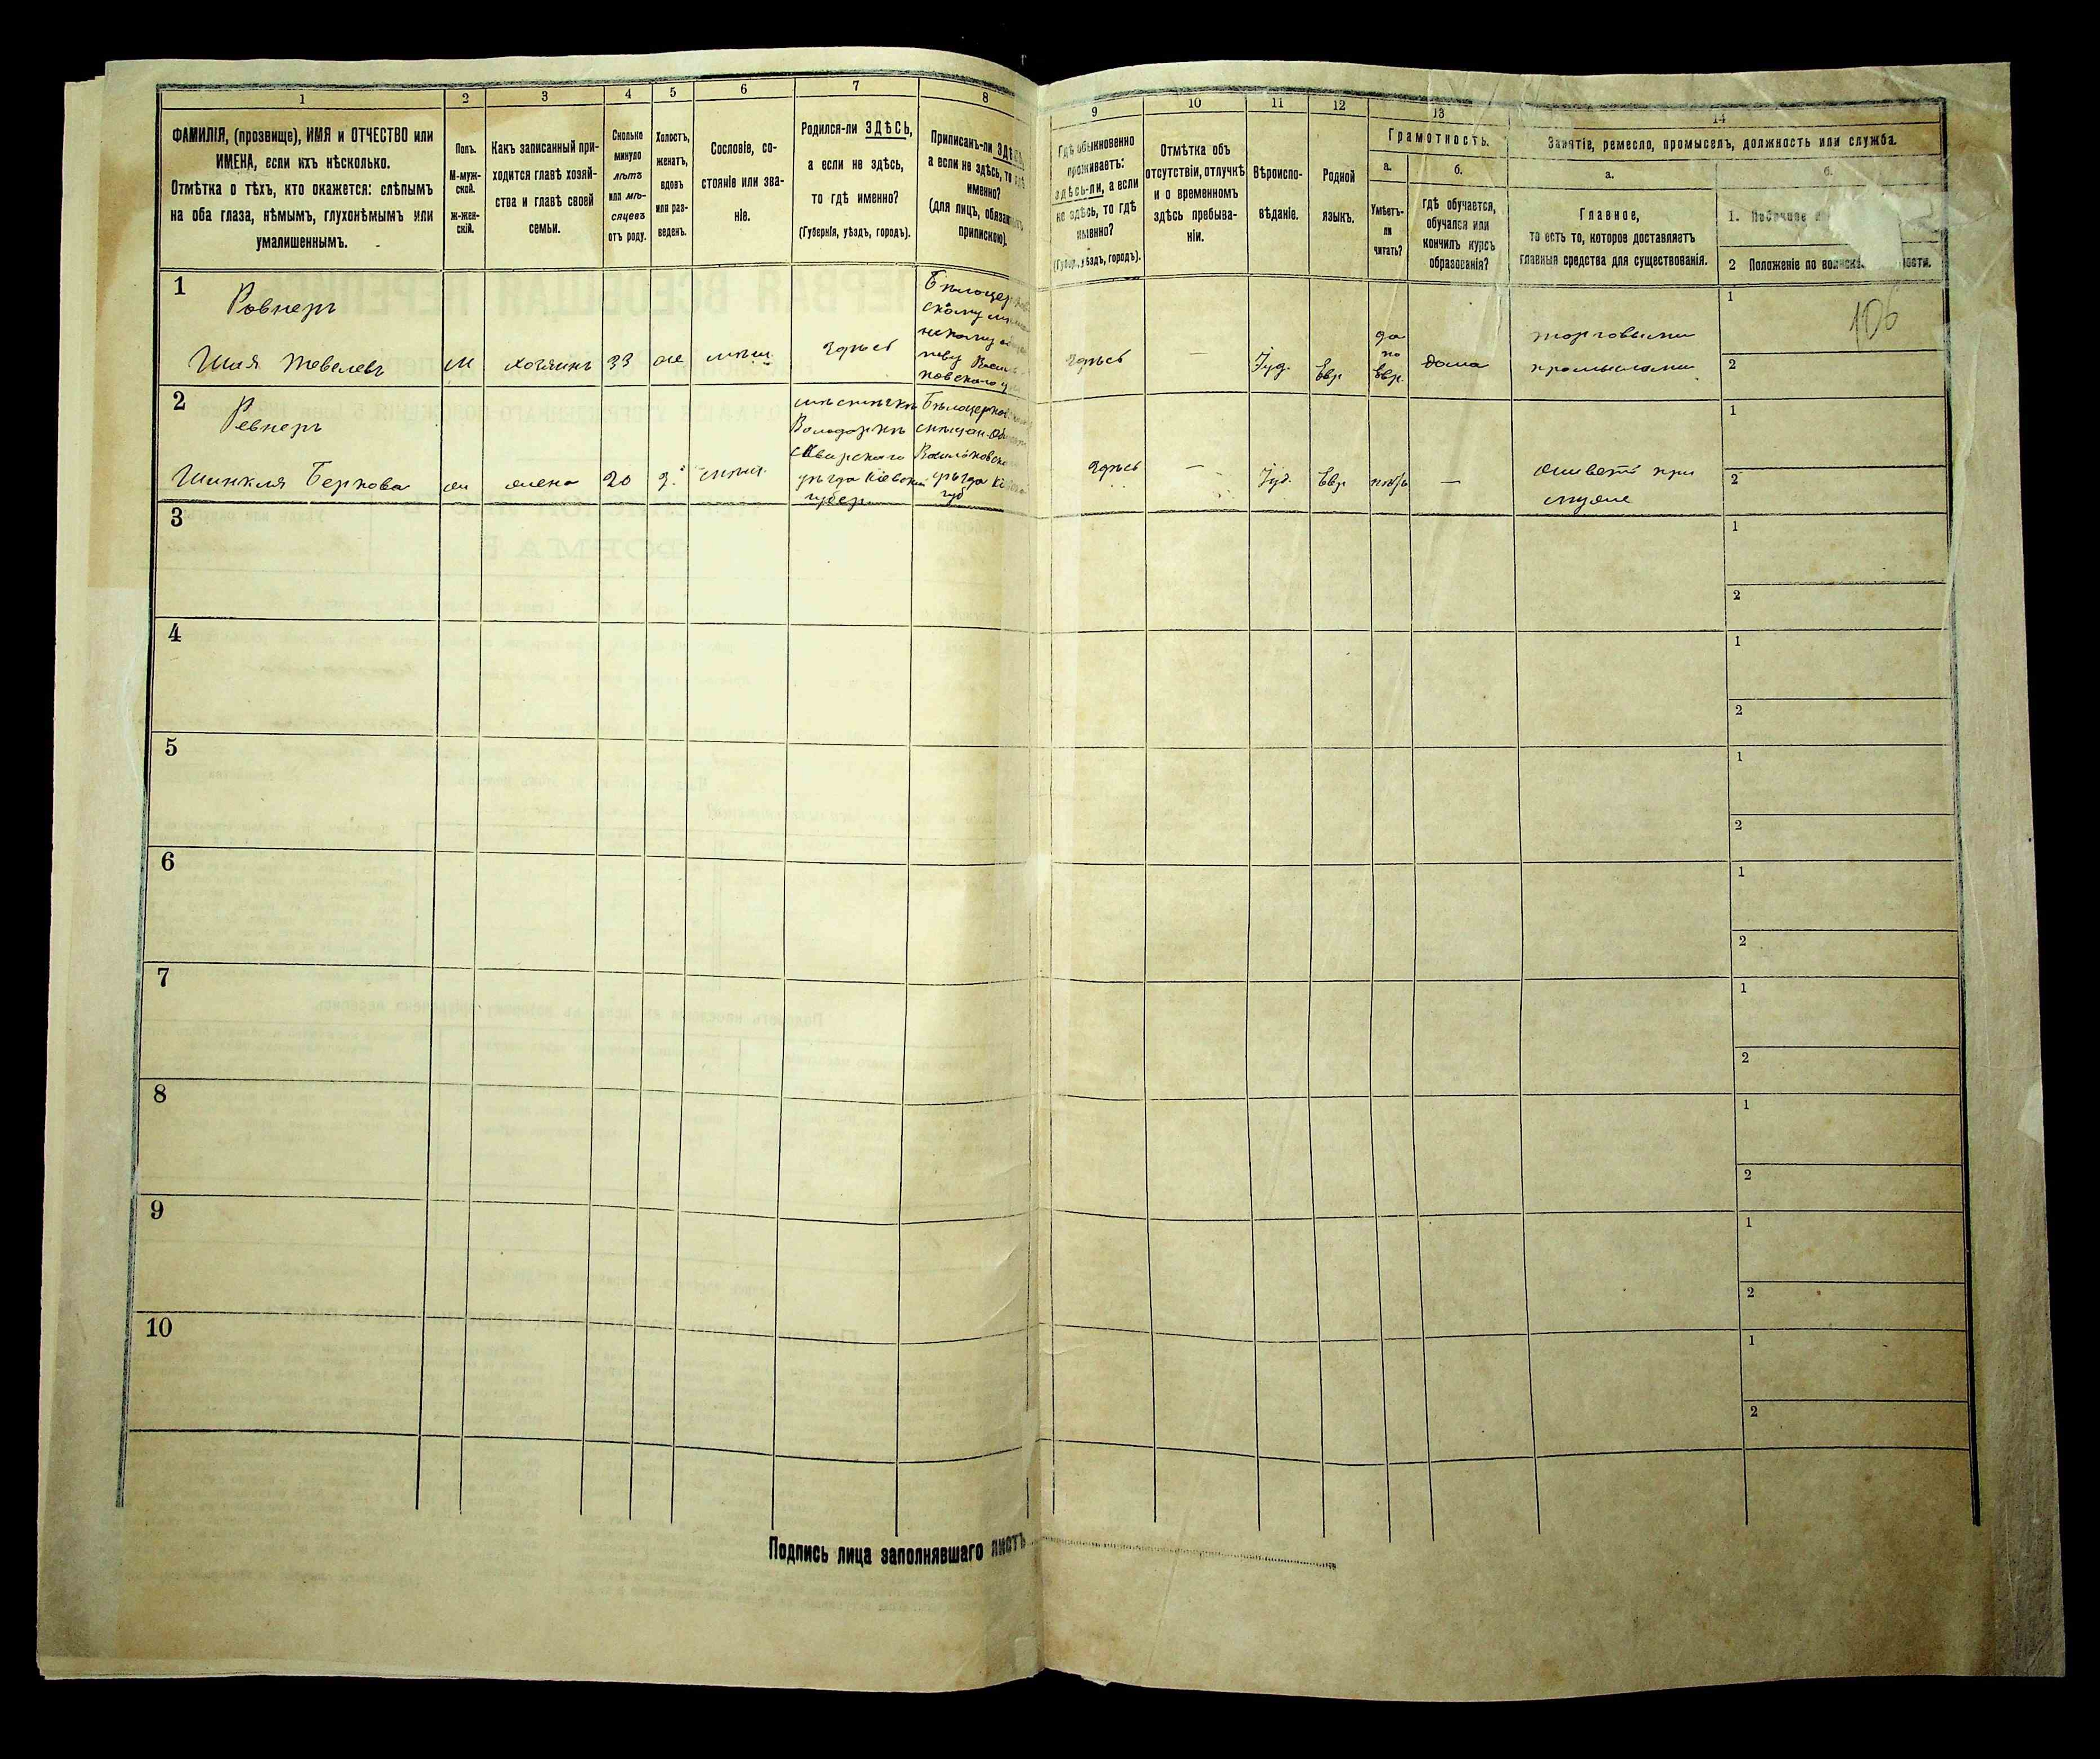 1
2
3
4
5
6
7
8
9
10
11
12
13
14
ФАМИЛІЯ, (прозвище), ИМЯ и ОТЧЕСТВО или
ИМЕНА, если ихъ нѣсколько.
Отмѣтка о тѣхъ, кто окажется: слѣпымъ
на оба глаза, нѣмымъ, глухонѣмымъ или
умалишеннымъ.
Полъ.
М-муж-
ской.
ж-жен-
скій.
Какъ записанный при-
ходится главѣ хозяй-
ства и главѣ своей
семьи.
Сколько
минуло
лѣтъ
или мѣ-
сяцевъ
отъ роду.
Холостъ,
женатъ,
вдовъ
или раз-
веденъ.
Сословіе, со-
стояніе или зва-
ніе.
Родился-ли ЗДѢСЬ,
а если не здѣсь,
то гдѣ именно?
(Губернія, уѣздъ, городъ).
Приписанъ-ли ЗДѢСЬ,
а если не здѣсь, то гдѣ
именно?
(для лицъ, обязанныхъ
припискою).
Гдѣ обыкновенно
проживаетъ:
здѣсь-ли, а если
не здѣсь, то гдѣ
именно?
(Губер., уѣздъ, городъ).
Отмѣтка объ
отсутствіи, отлучкѣ
и о временномъ
здѣсь пребыва-
ніи.
Вѣроиспо-
вѣданіе.
Родной
языкъ.
Грамотность.
а.
Умѣетъ-
ли
читать?
б.
гдѣ обучается,
обучался или
кончилъ курсъ
образованія?
Занятіе, ремесло, промыселъ, должность или служба.
а.
Главное,
то есть то, которое доставляетъ
главныя средства для существованія.
б.
1. Побочное
2 Положеніе по воинск
106
1
Ровнеръ
Шая Тевелевъ
М
хозяинъ
33
же
мѣщ.
здѣсь
здѣсь
—
Іуд.
Евр
да
по
Евр.
дома
торговыми
промыслами
1
2
2
Ревнеръ
Шинкля Беркова
ж
жена
20
з.
мѣщ.
мѣстечкѣ
Володаркѣ
Сквирского
уѣзда Кіевской
губер
здѣсь
—
Іуд.
Евр
нѣтъ
—
живетъ при
мужѣ
1
2
3
1
2
4
1
2
5
1
2
6
1
2
7
1
2
8
1
2
9
1
2
10
1
2
Подпись лица заполнявшаго листъ